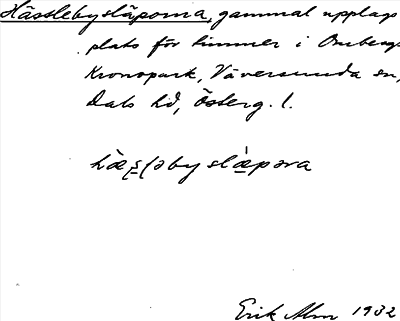 Hässlebysläporna, gammal upplags
plats för timmer i Ombergs
Kronopark, Väversunda sn,
Dals hd, Österg. l.
hæ̀s̠ləby slæ̀pəra
Erik Alm 1932